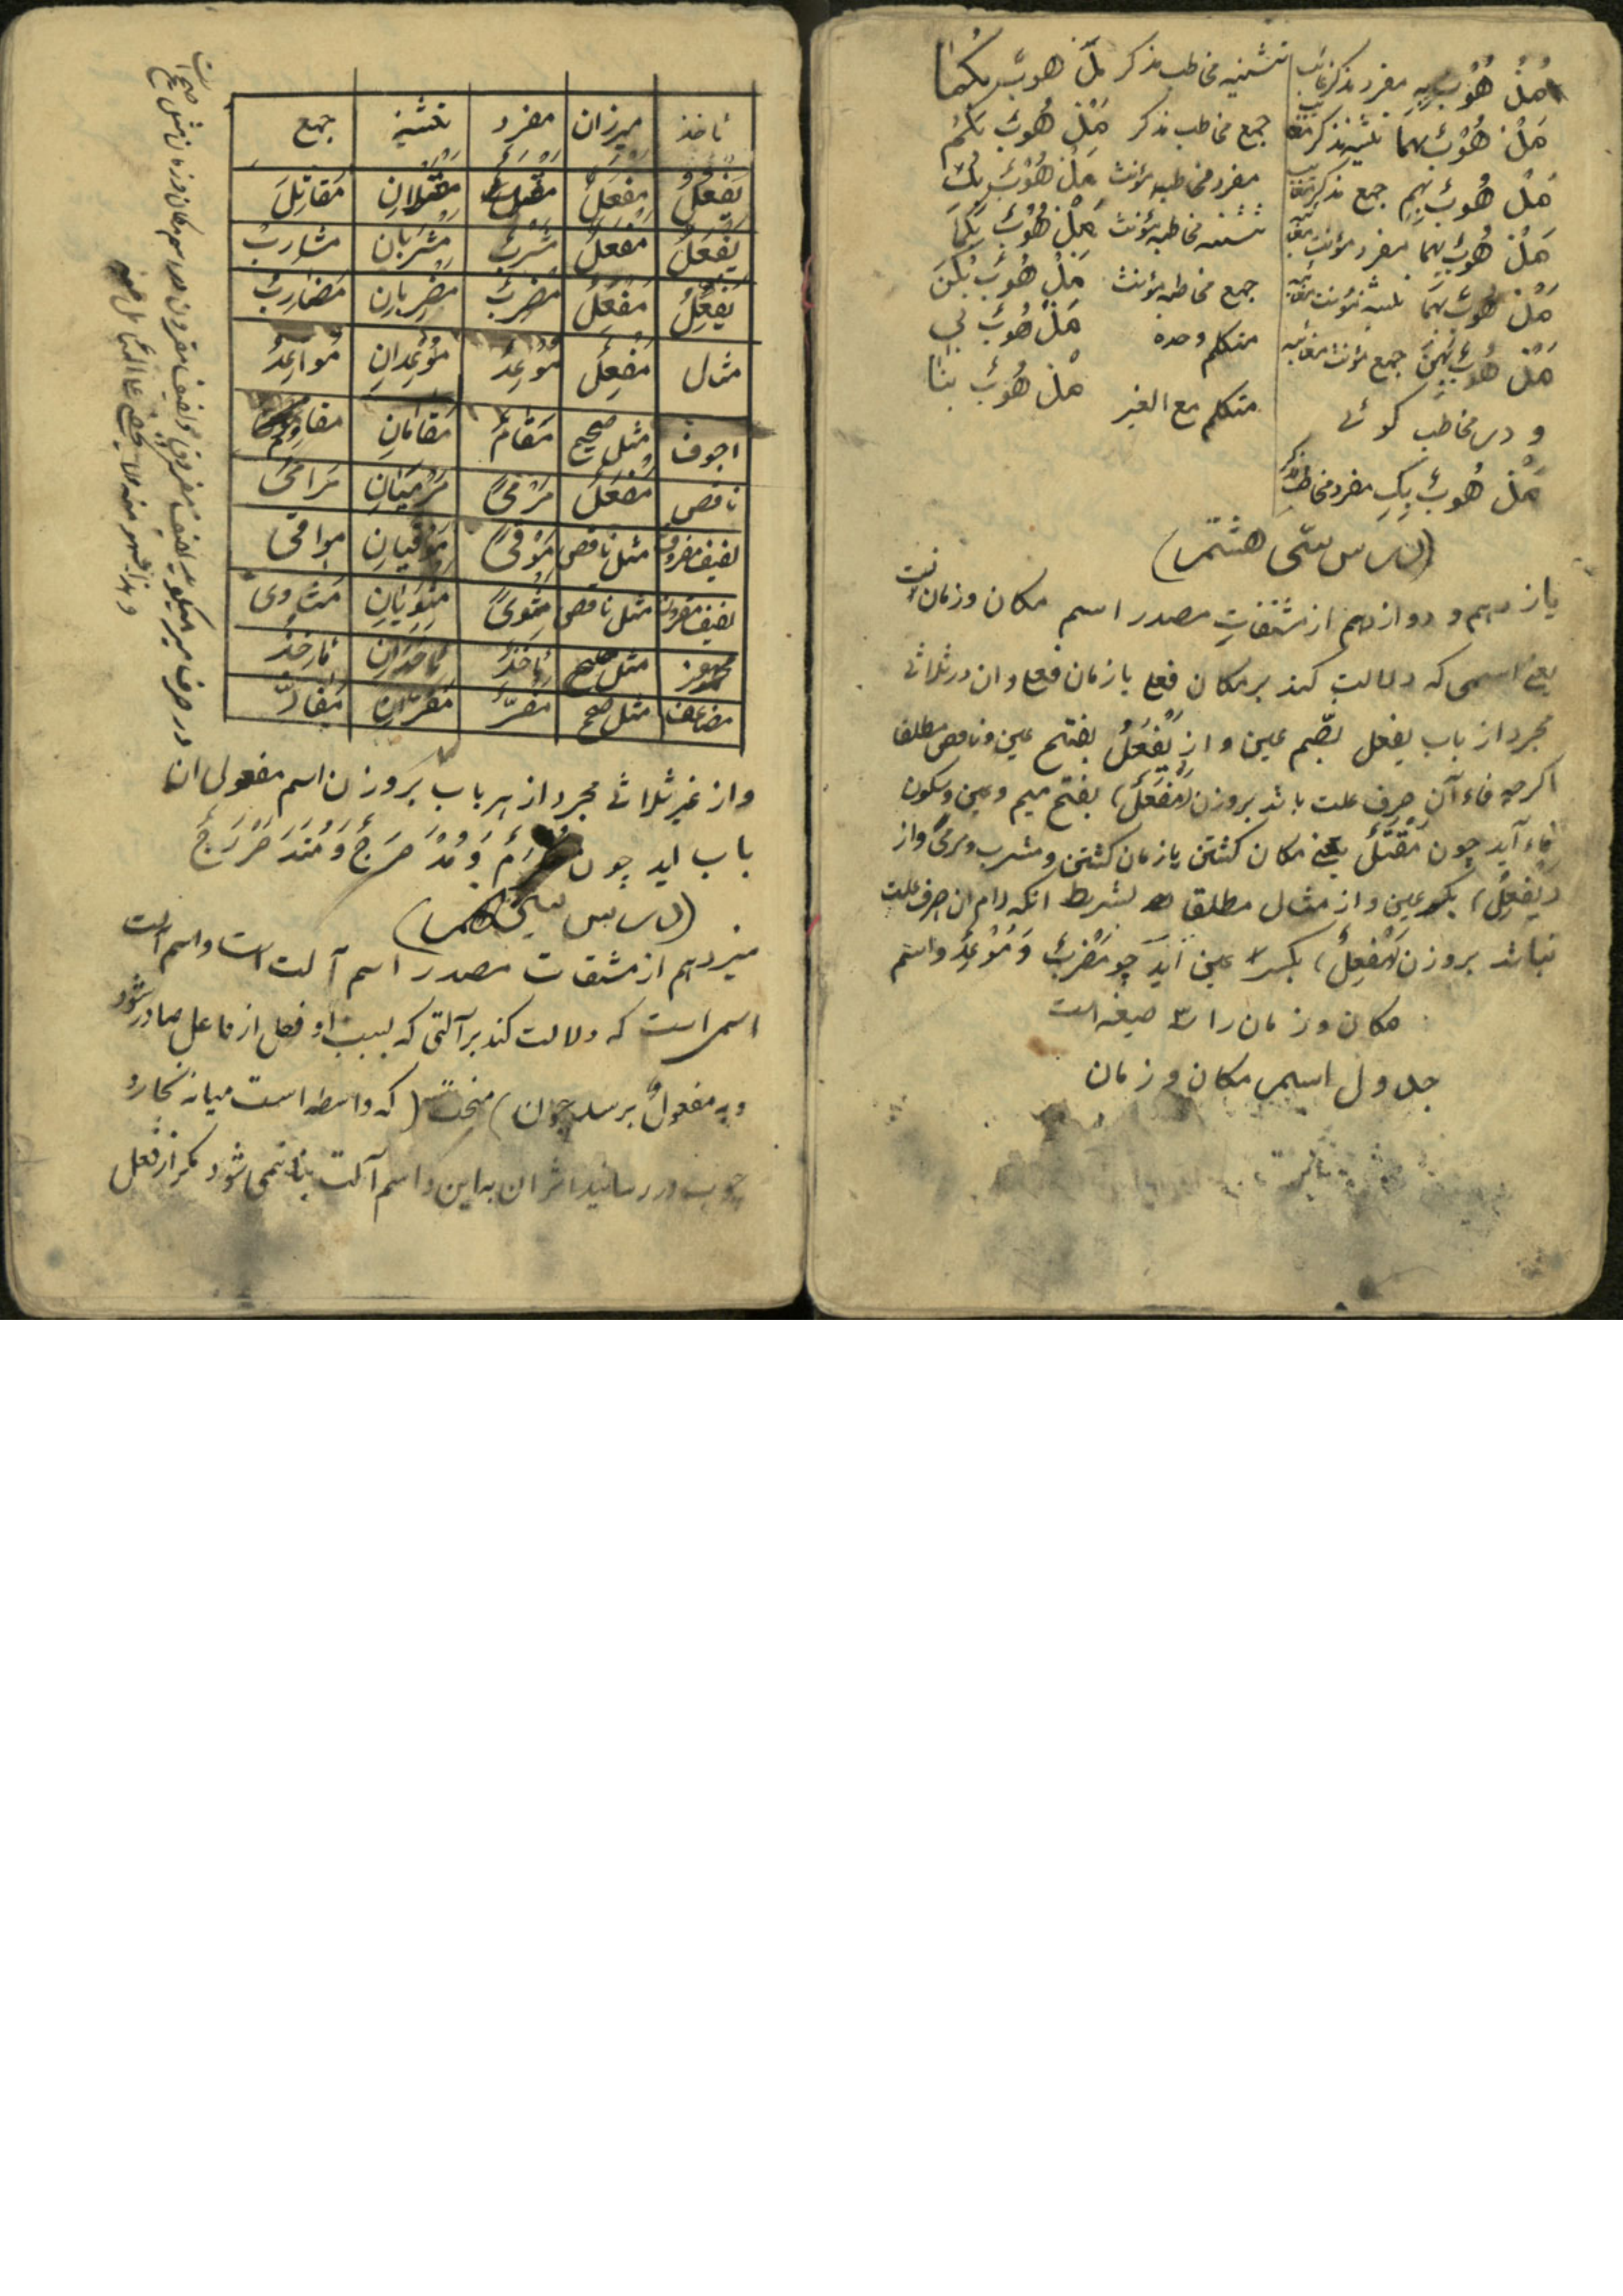 هَلْ هُوْبَ بِهِ مفرد مذکر غائب
هَلْ هُوْبَ بِهِما تثنیه مذکر
هَلْ هُوْبَ بِهِم جمع مذکر
هَلْ هُوْبَ بِها مفرد مؤنث
هَلْ هُوْبَ بِهِما تثنیه مؤنث
هَلْ هُوْبَ بِهِنَّ جمع مؤنث مغائبه
و در مخاطب کوئے
هَلْ هُوْبَ بِكَ مفرد مخاطب
تثنیه مخاطب مذکر هَلْ هوبَ بِكُمٰا
جمع مخاطب مذکر هَلْ هُوبَ بِكُمْ
مفرد مخاطبه مؤنث هَلْ هُوْبَ بِكِ
تثنیه مخاطبه مؤنث هَلْ هُوْبَ بِكُمَا
جمع مخاطبه مؤنث هَلْ هُوبَ بِكُنَّ
متکلم وحده هَلْ هُوبَ بي
متکلم مع الغیر هَلْ هُوبَ بنٰا
(درس سّی هشتم)
یازدهم و دوازدهم از مشتقاتِ مصدر اسم مکان و زمان است
یعنی اسمی که دلالت کند بر مکان فعل یا زمان فعل و ان در ثلاثی
مجرد از باب یفعل بضّم عین و از یَفْعَلُ بفتح عین و ناقص مطلقا
اکرچه فاء آن حرف علت باشد بروزن (مَفْعَلْ) بفتح میم و عین و سکون
فاء آید چون مَقْتَلْ یعنی مکان کشتن یا زمان کشتن و مشرب و مرمیً و از
(یَفْعِلُ) بکسر عین و از مثال مطلقا بشرط انکه لام ان حرف علت
نباشد بروزن (مَفْعِلْ) بکسر عین آید چو مَضْرِبْ وَ مَوْعِدْ و اسم
مکان و زمان را ۳ صیغه است
جدول اسم مکان و زمان
ماخذ میزان مفرد تثنیه جمع
یَفْعُلُ مَفْعَلْ مَقْتَلْ مَقْتَلانِ مَقاتِلَ
یَفْعَلُ مَفْعَلْ مَشْرَبْ مَشْرَبان مشاربُ
یَفْعِلُ مَفْعِلْ مَضْرِبْ مَضْرِبانِ مَضارِبُ
مثال مَفْعِلْ مَوْعِدْ مَوْعِدانِ مَواعِدُ
اجوف مثل صحیح مَقامْ مَقامانِ مقاوِمُ
ناقص مَفْعَلْ مَرْمیً مَرْمَیَانِ مَرامیَ
لفیف مفروق مثل ناقص مَوْقیً مَوْقَیانِ مواقی
لفیف مقرون مثل ناقص مَثْویً مَثْوَیانِ مَثاوی
مهموز مثل صحیح مَأخَذْ مَأخَذانِ مَأخِذُ
مضاعف مثل صحیح مَفَرّ مَفَرّانِ مَفارّ
و از غیر ثلاثی مجرد از هر باب بروزن اسم مفعول ان
باب اید چون وَ مُدَحْرَجْ وَ مُتَدَحْرَجْ
(درس سی نهم)
سیزدهم از مشتقات مصدر اسم آلت است و اسم الت
اسمی است که دلالت کند بر آلتی که بسبب او فعل از فاعل صادر شود
و به مفعول برسد چون) منحت (که واسطه است میانه نجار و
چوب در رسانید اثر ان به این و اسم آلت بنا نمی شود مکر از فعل